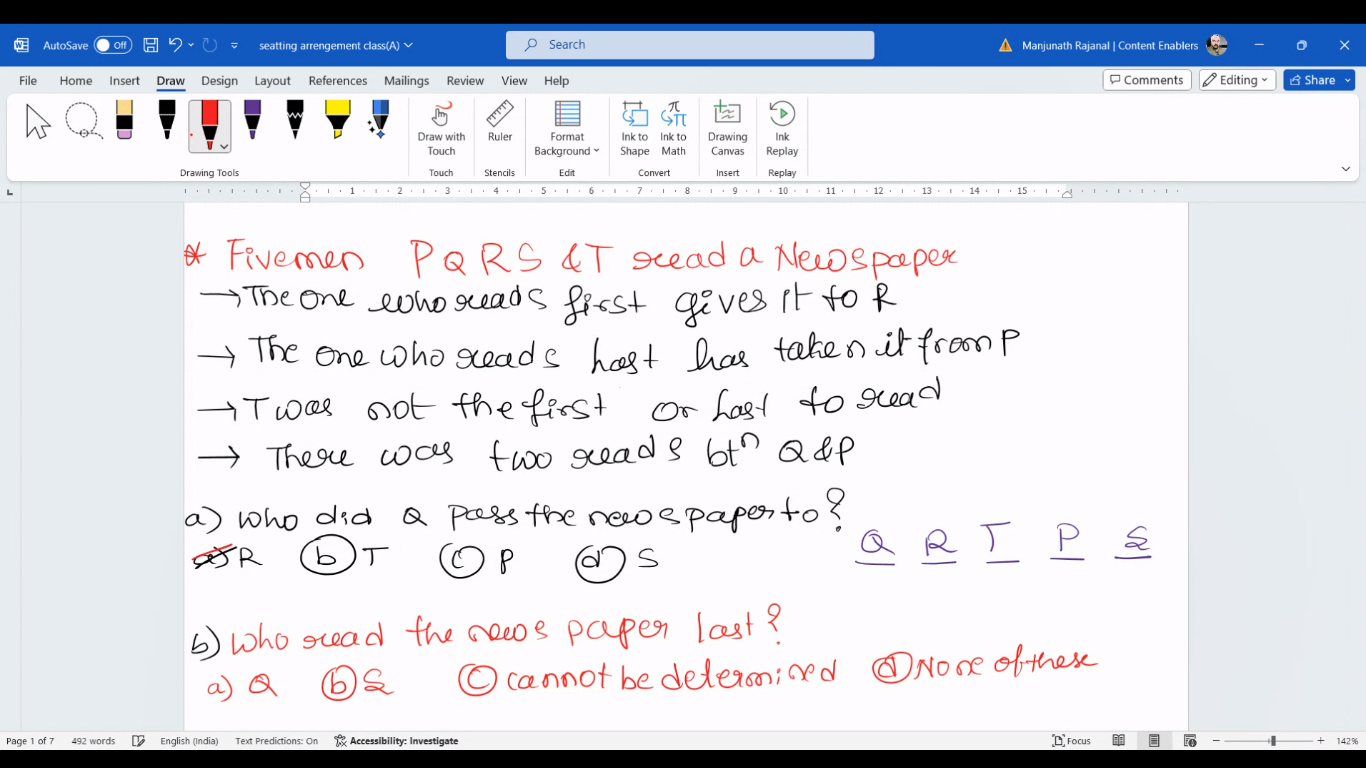 AutoSave Off seatting arrangement class(A) Search Manjunath Rajanal | Content Enablers
File Home Insert Draw Design Layout References Mailings Review View Help Comments Editing Share
Draw with Touch Ruler Format Background Ink to Shape Ink to Math Drawing Canvas Ink Replay
Drawing Tools Touch Stencils Edit Convert Insert Replay
1 2 3 4 5 6 7 8 9 10 11 12 13 14 15
* Fivemen P Q R S & T read a Newspaper
→ The one who reads first gives it to R
→ The one who reads last has taken it from P
→ T was not the first or last to read
→ There was two reads btn Q & P
a) who did Q pass the newspaper to?
a) R b) T c) P d) S
Q R T P S
b) who read the news paper last?
a) Q b) S c) cannot be determined d) None of these
Page 1 of 7 492 words English (India) Text Predictions: On Accessibility: Investigate Focus 142%